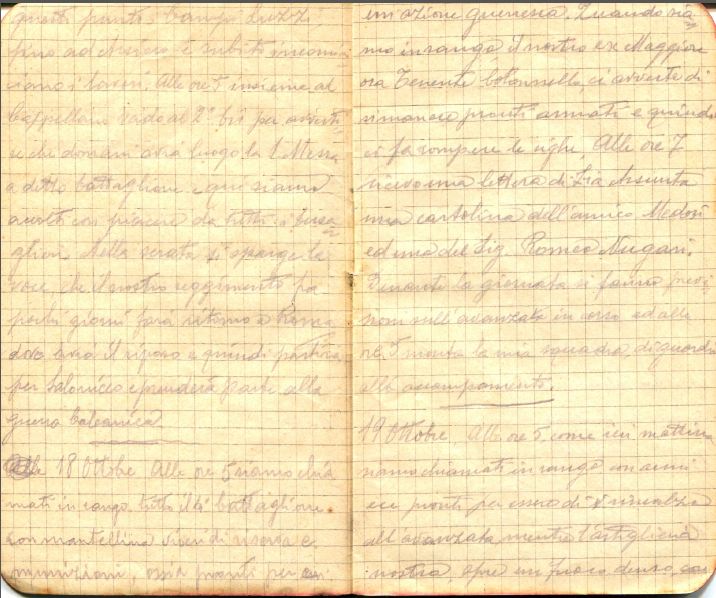 questi punti. Campo Luzzi
fino ad Assiero è subito incomin
ciano i lavori. Alle ore 5 insieme al
Cappellano vado al 2° bis per avverti
re che domani avrà luogo la S. Messa
a detto battaglione e qui siamo
accolti con piacere da tutti i bersa
glieri. Nella serata si sparge la
voce che il nostro reggimento fra
pochi giorni farà ritorno a Roma
dove avrà il riposo e quindi partirà
per Salonicco e prenderà parte alla
guerra balcanica
18 Ottobre Alle ore 5 siamo chia
mati in rango tutto il battaglione
con mantellina viveri di riserva e
munizioni, ossia pronti per
un'azione guerresca. Quando sia
mo in rango il nostro ex Maggiore
ora Tenente Colonnello, ci avverte di
rimanere pronti armati e quindi
ci fa rompere le righe. Alle ore 7
ricevo una lettera di Zia Assunta
una cartolina dell'amico Medori
ed una del Sig. Romeo Nugari.
Durante la giornata si fanno previ
sioni sull'avanzata in corso ed alle
ore 5 monta la mia squadra di guardia
all'accampamento.
19 Ottobre Alle ore 5 come ieri mattina
siamo chiamati in rango con armi
ecc pronti per essere di rincalzo
all'avanzata mentre l'artiglieria
nostra, apre un fuoco denso,